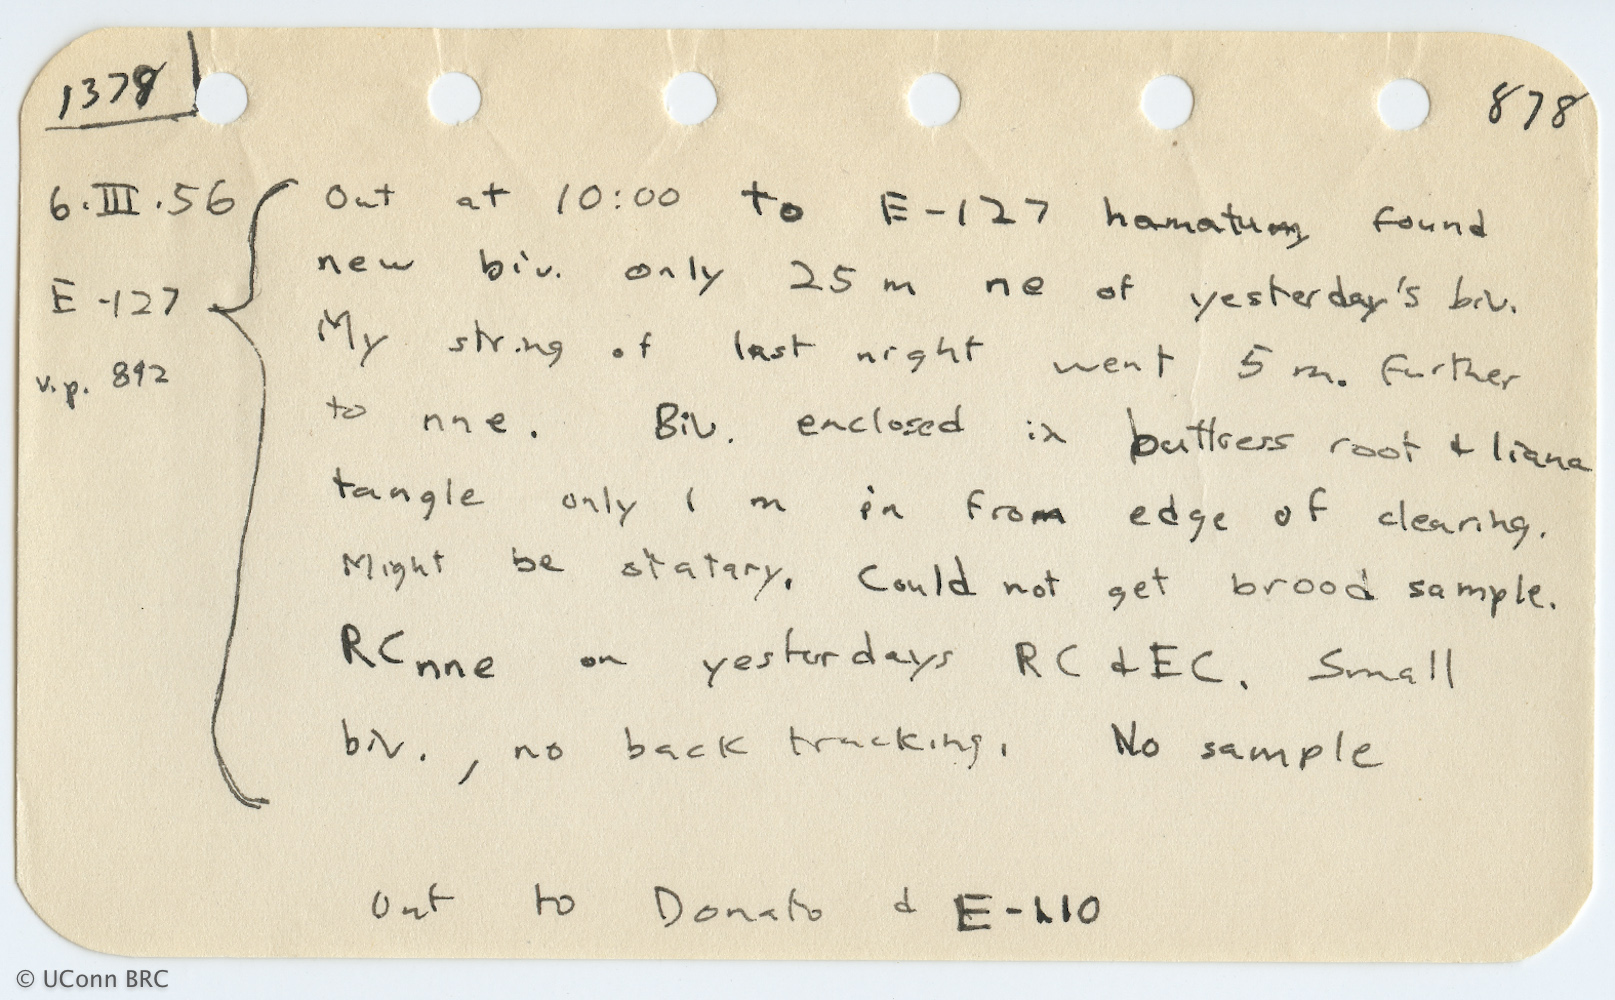 1378
878
6.III.56
E-127
v.p. 892
Out at 10:00 to E-127 hamatum, found
new biv. only 25 m ne of yesterday's biv.
My string of last night went 5 m. further
to nne. Biv. enclosed in buttress root & liana
tangle only 1 m in from edge of clearing.
Might be statary. Could not get brood sample.
RC nne on yesterdays RC & EC. Small
biv., no back tracking. No sample
Out to Donato & E-110
© UConn BRC